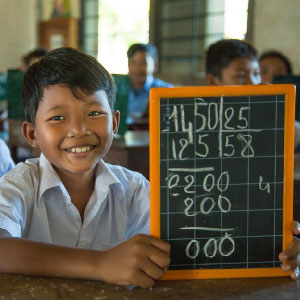 1450 25
125 58
0200 4
200
000